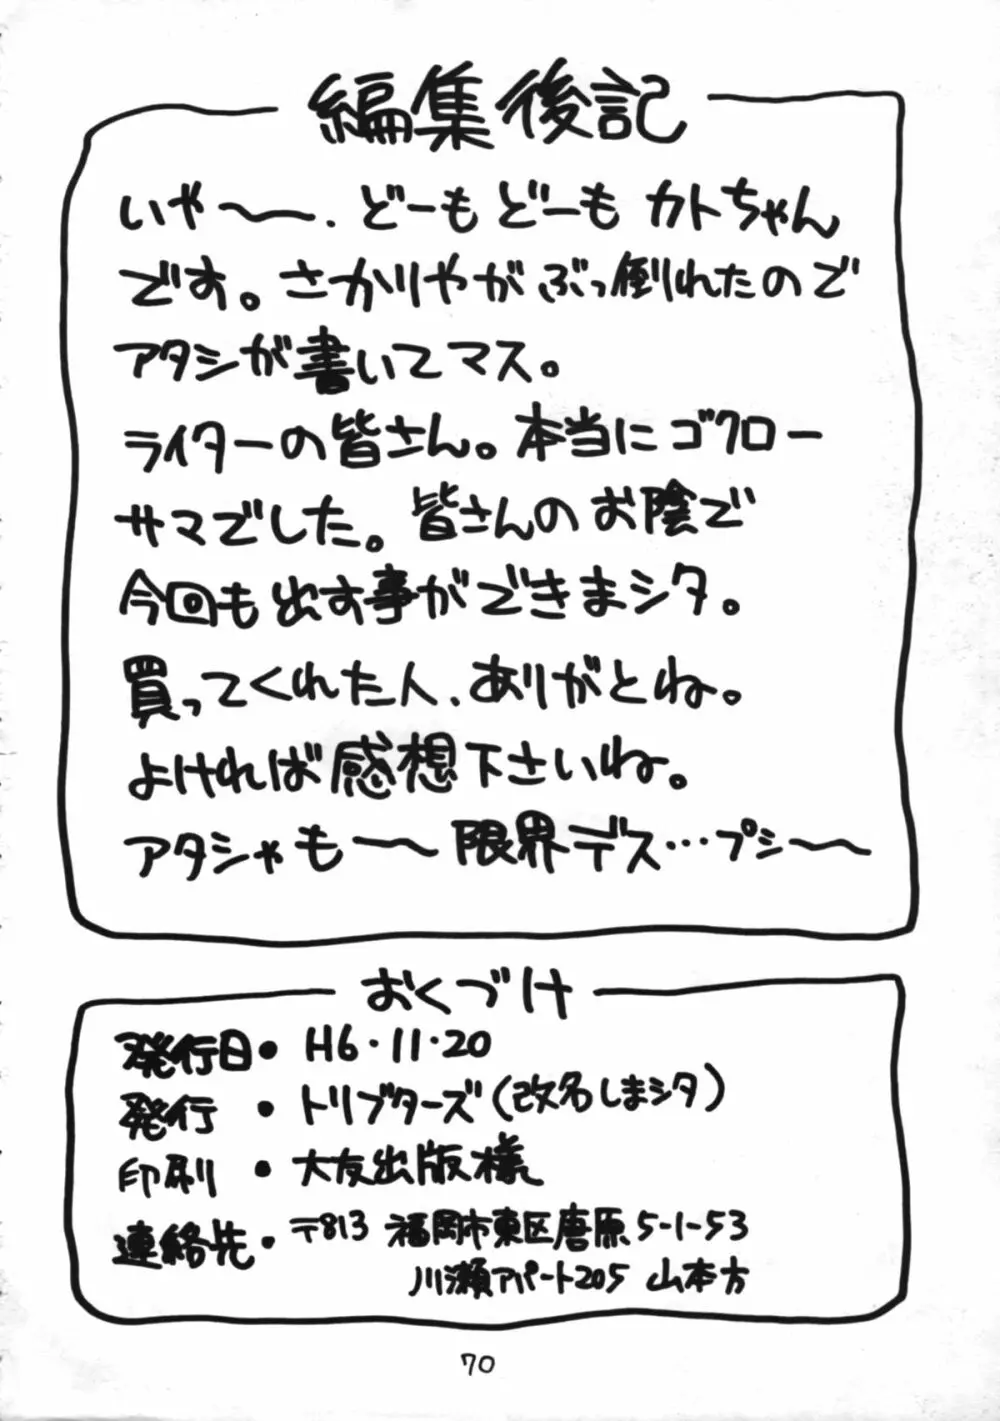 編集後記
いや〜、どーもどーもカトちゃん
です。さかりやがぶっ倒れたので
アタシが書いてマス。
ライターの皆さん。本当にゴクロー
サマでした。皆さんのお陰で
今回も出す事ができまシタ。
買ってくれた人、ありがとね。
よければ感想下さいね。
アタシゃも〜限界デス…プシ〜〜
おくづけ
発行日・H6・11・20
発行・トリブターズ(改名しまシタ)
印刷・大友出版様
連絡先・〒813 福岡市東区唐原5-1-53
川瀬アパート205 山本方
70